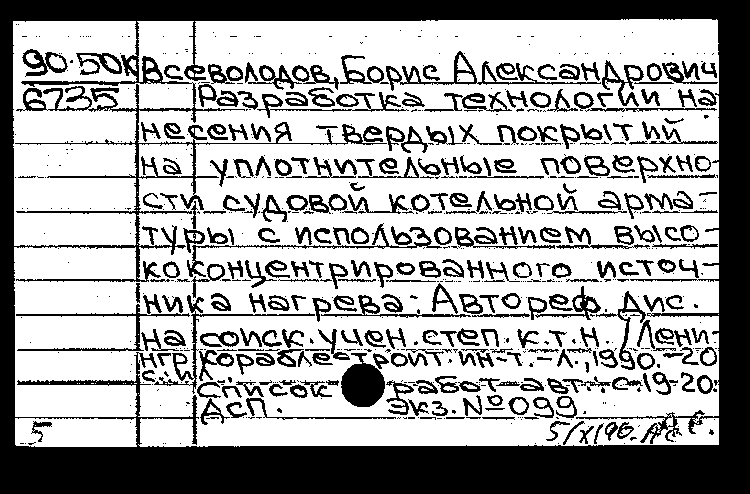 90-50К Всеволодов, Борис Александрович
6735 Разработка технологии на
несения твердых покрытий
на уплотнительные поверхно-
сти судовой котельной арма-
туры с использованием высо-
коконцентрированного источ-
ника нагрева: Автореф. дис.
на соиск. учен. степ. к.т.н. / Лени-
нгр. кораблестроит. ин-т. - Л., 1990. - 20
с.: ил.
Список работ авт.: с. 19-20.
ДСП. Экз. № 099.
5 5/X190.